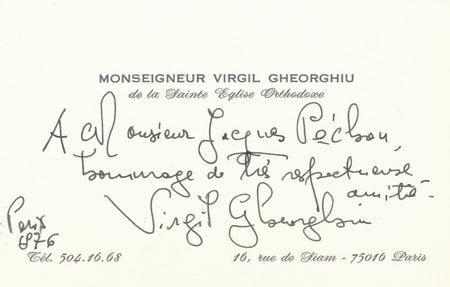 MONSEIGNEUR VIRGIL GHEORGHIU
de la Sainte Eglise Orthodoxe
A Monsieur Jacques
hommage de très respectueuse
amitié.
Virgil Gheorghiu
Paris
1976
Tél. 504.16.68
16, rue de Siam - 75016 Paris